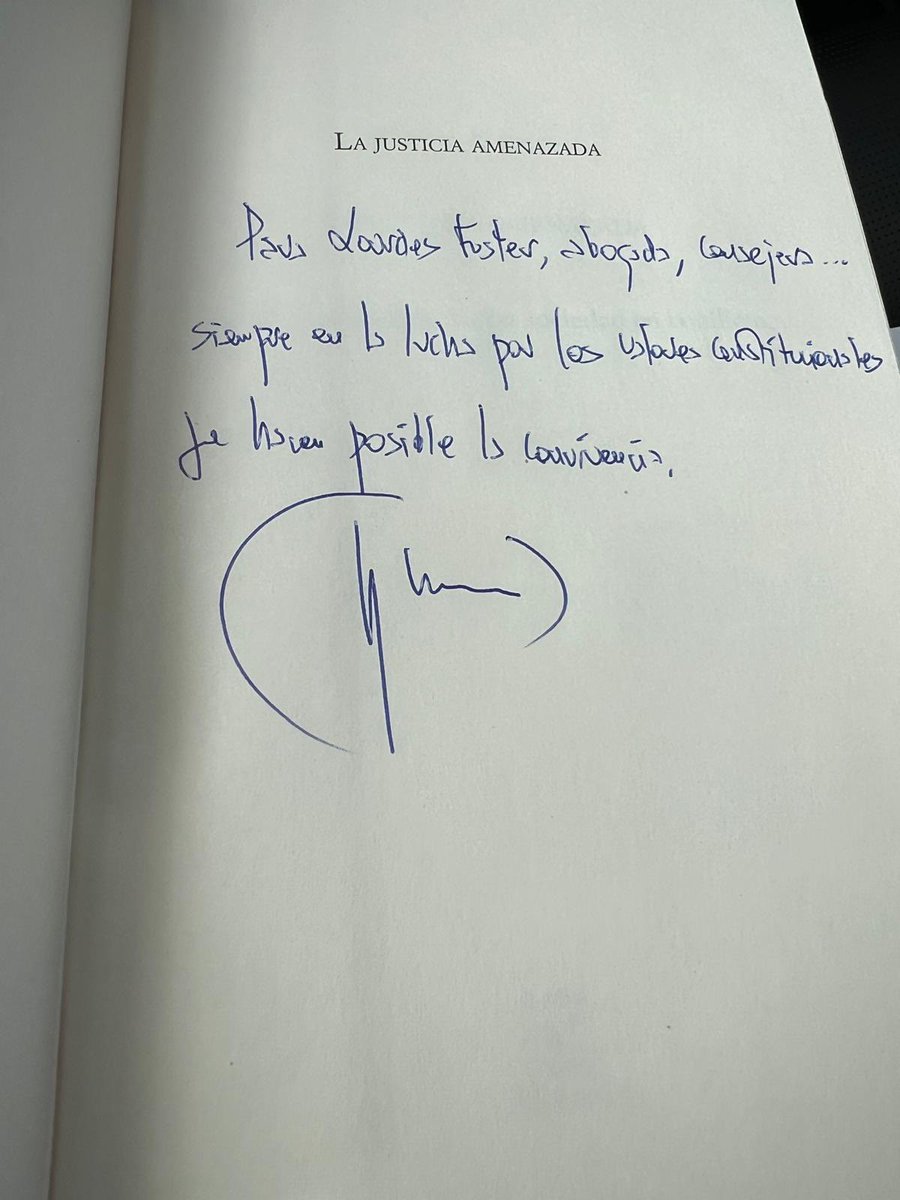 LA JUSTICIA AMENAZADA
Para Lourdes Fuster, abogada, consejera...
siempre en la lucha por los valores constitucionales
que hacen posible la convivencia.